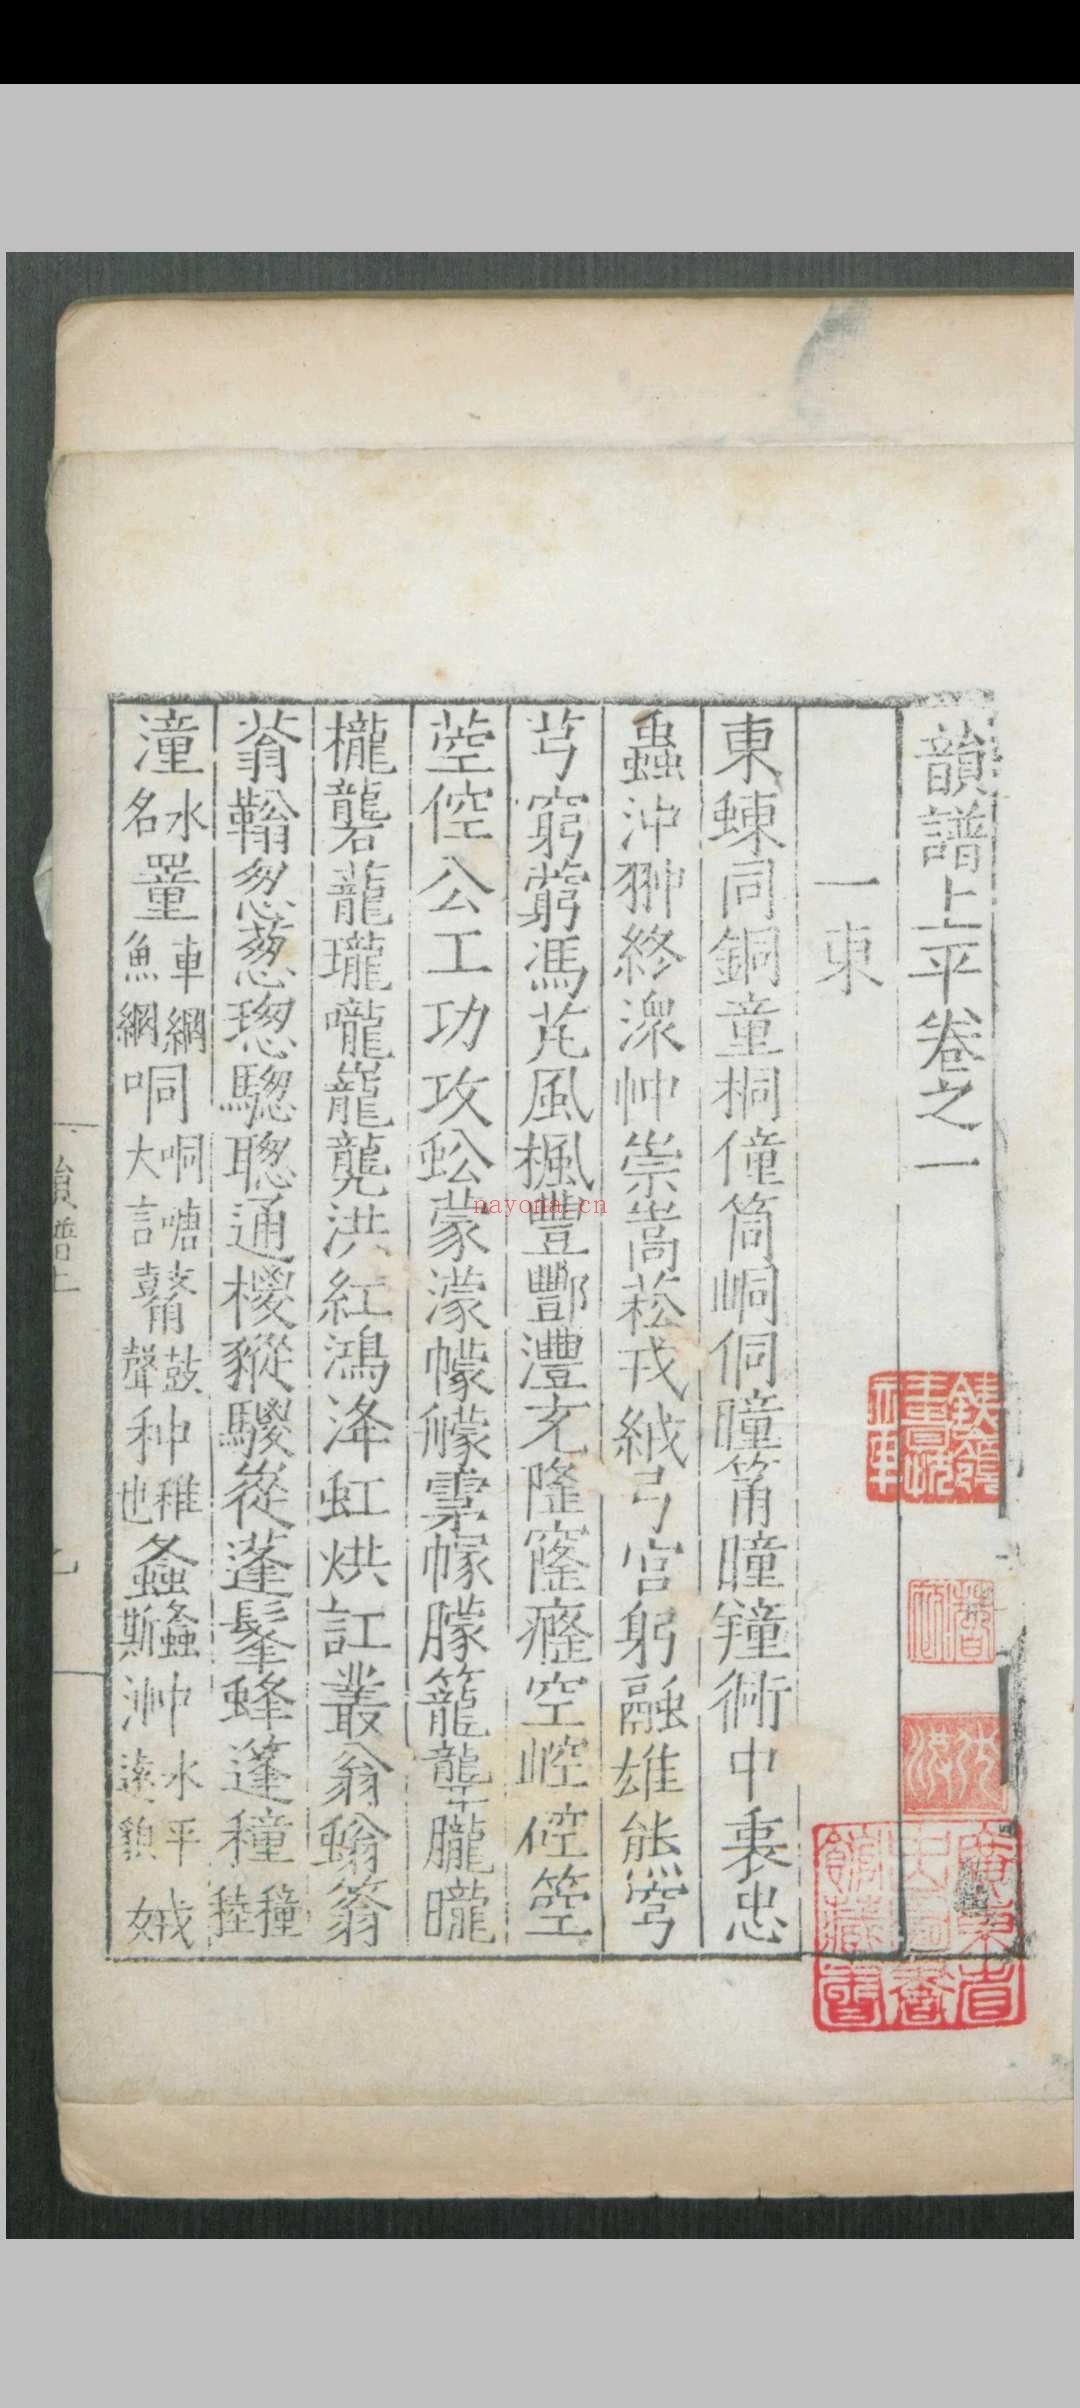 韻譜上平卷之一
一東
東蝀同銅童桐僮筒峒侗曈筩瞳犝衕中衷忠
蟲沖翀終潨忡崇嵩菘戎絨弓宮躬融雄熊穹
芎窮藭馮芃風楓豐酆灃充隆窿癃空崆倥箜
崆倥公工功攻蚣蒙濛幪艨雺幏朦籠聾朧曨
櫳礱蘢瓏嚨巃龒洪紅鴻洚虹烘訌叢翁螉篛
蓊鞥怱蔥璁驄聰通椶豵騣蓯蓬髼蜂篷穜穜稑
潼水名罿車網魚網哃哃嘡大言鼛鼓聲种稚也螽螽斯浺水平遠貌娀
韻譜上
乙
nayona.cn